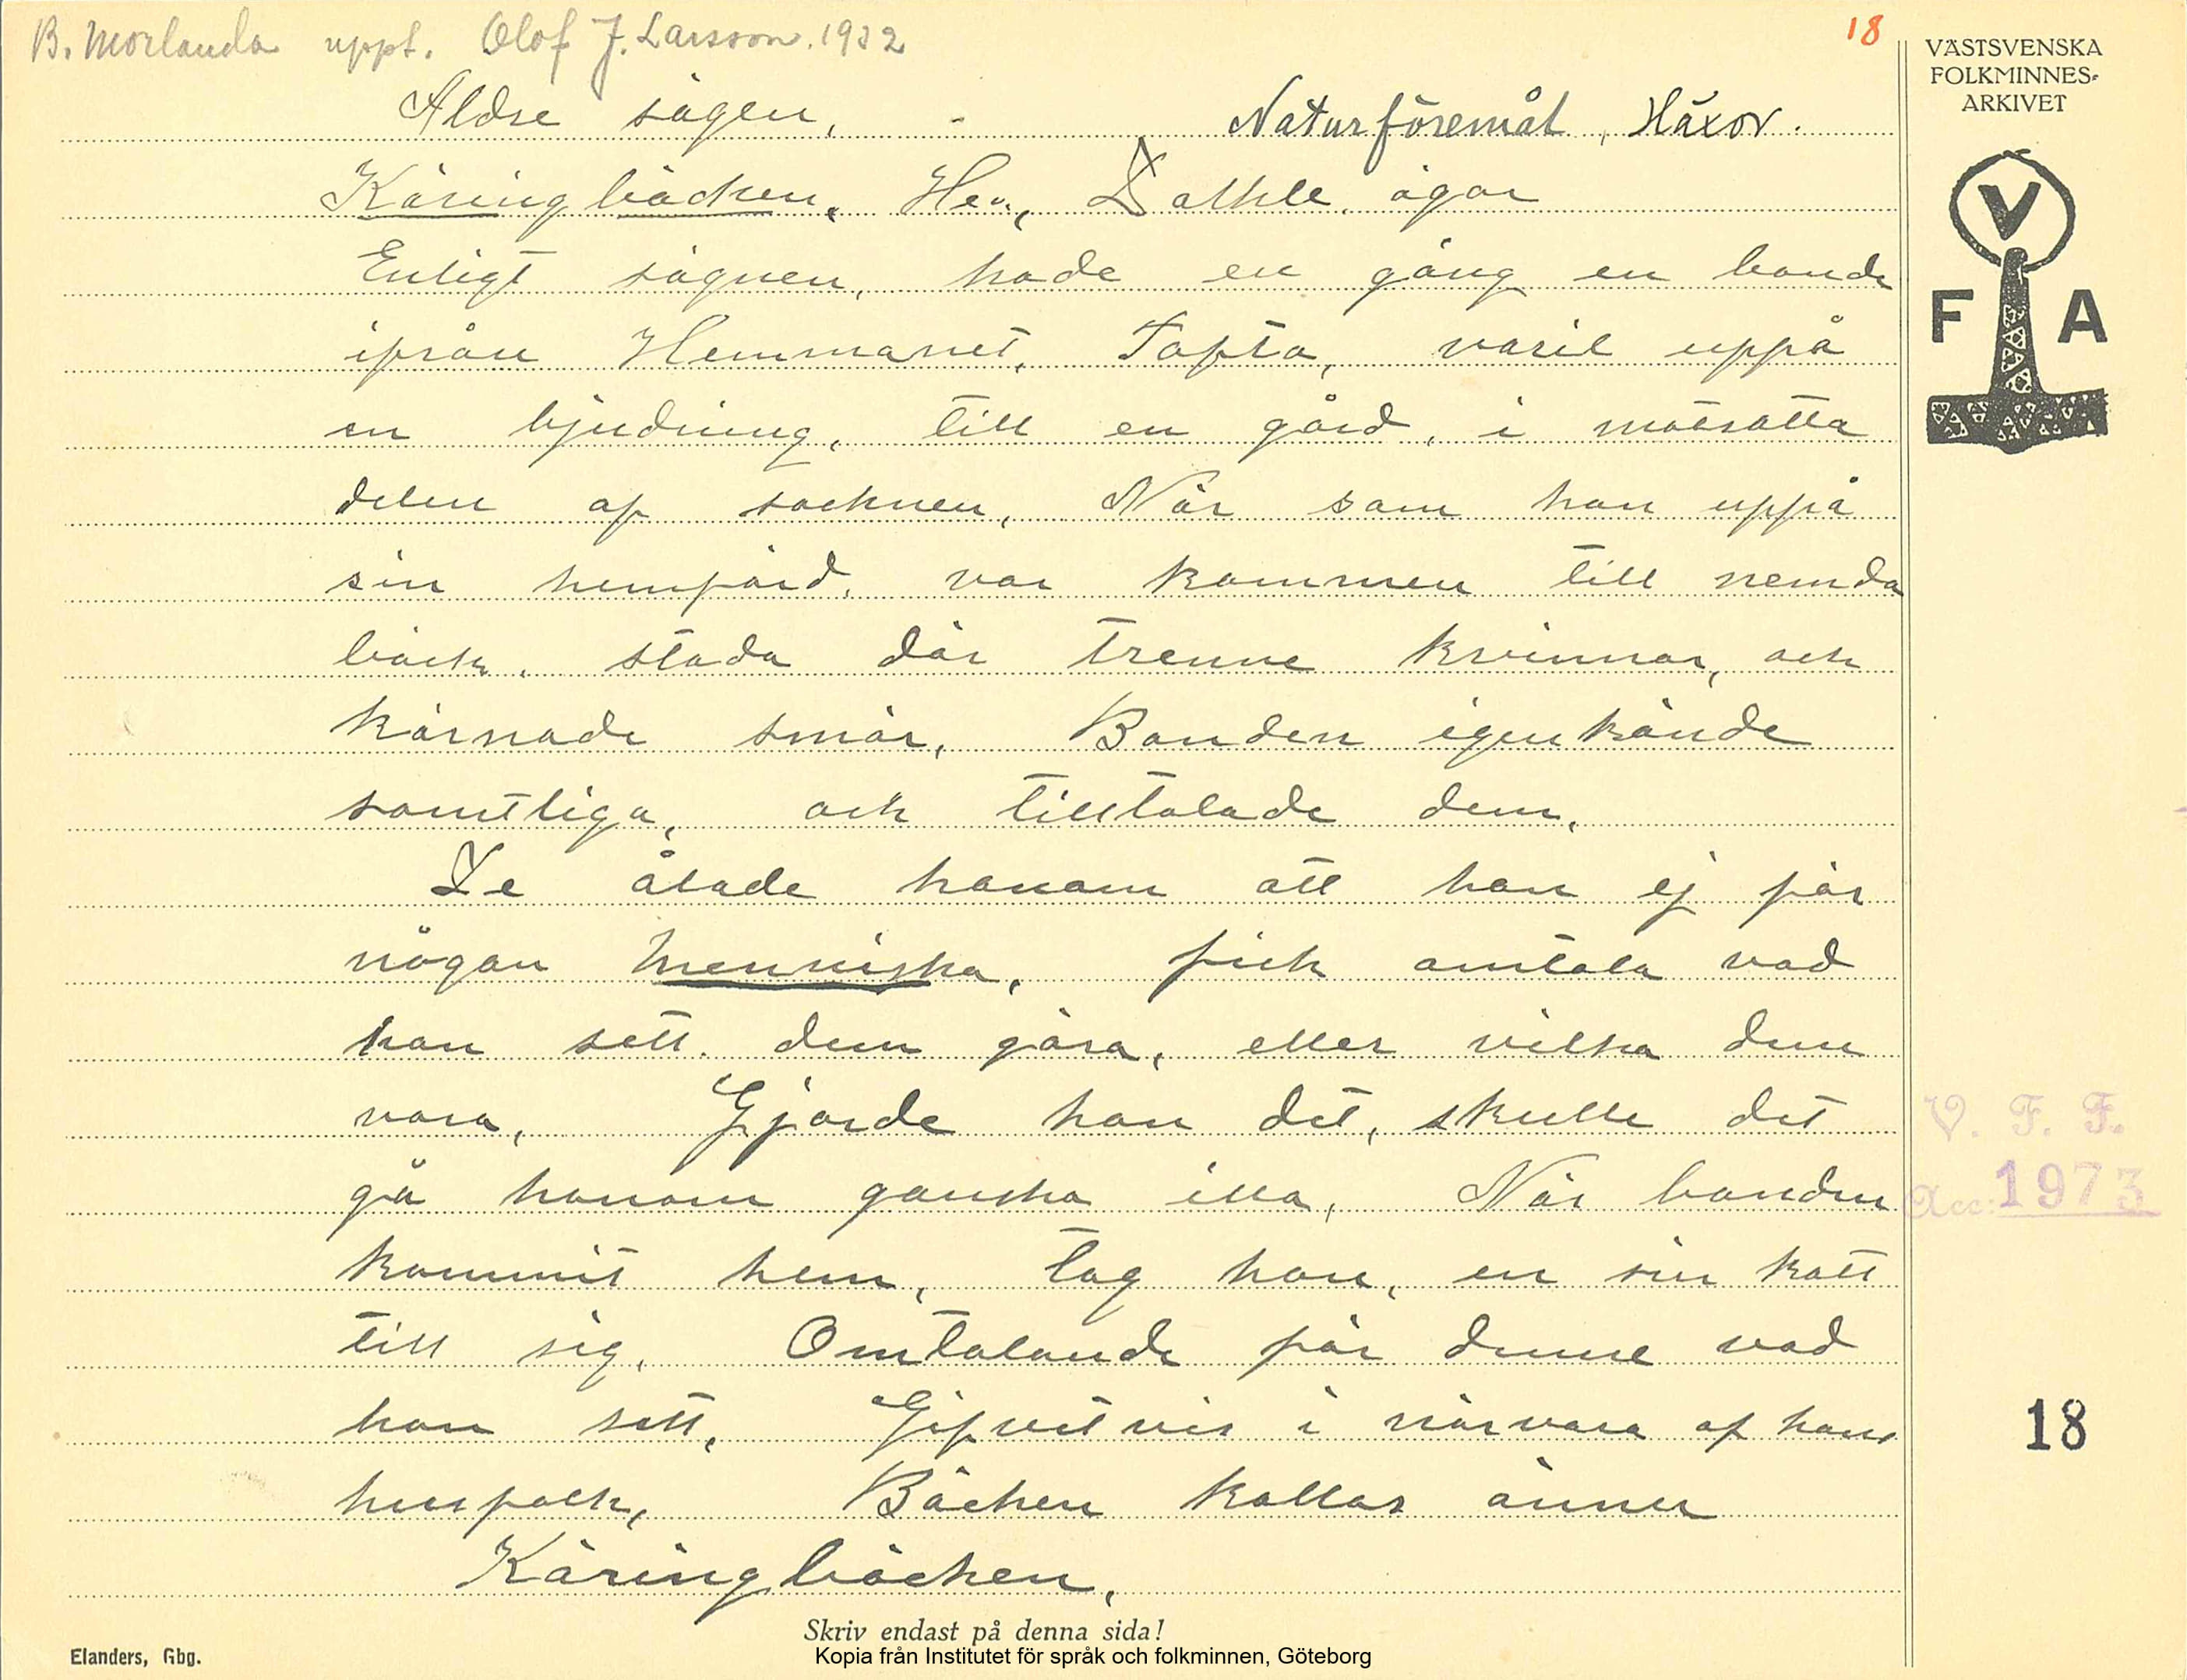 B. Morlanda uppt. Olof J. Larsson. 1932
18
VÄSTSVENSKA
FOLKMINNES-
ARKIVET
Äldre sägen, - Naturföremål, Häxor.
Käringbäcken, Hem, ägor
V
F A
Enligt sägnen, hade en gång en bonde
ifrån Hemmanet, Tofta, varit uppå
en bjudning, till en gård, i motsatta
delen af socknen, När som han uppå
sin hemfärd, var kommen till nemda
bäck, stoda där trenne kvinnor, och
kärnade smör, Bonden igenkände
samtliga, och tilltalade dem,
De ålade honom att han ej för
någon Menniska, fick omtala vad
han sett dem göra, eller vilka dem
vara, Gjorde han det, skulle det
gå honom ganska illa, När bonden
kommit hem, tog han, en sin katt
till sig, Omtalande för denne vad
han sett, Gifvetvis i närvara af hans
husfolk, Bäcken kallas ännu
Käringbäcken,
V. F. F.
Acc: 1973
18
Skriv endast på denna sida!
Elanders, Gbg.
Kopia från Institutet för språk och folkminnen, Göteborg